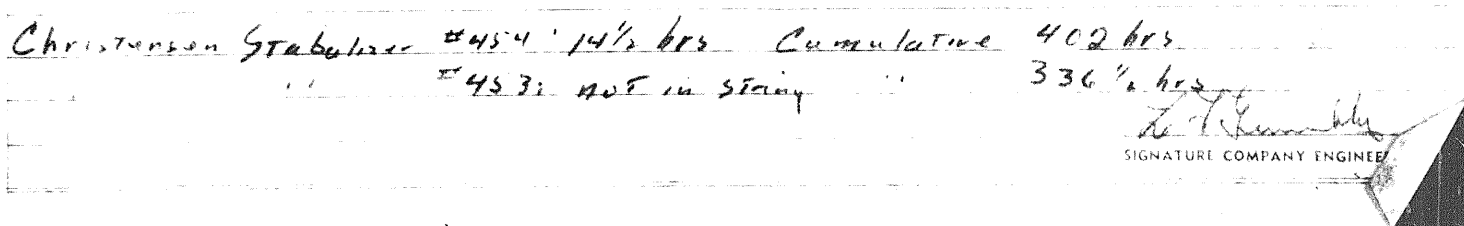 Christensen Stabalizer #454: 14½ hrs Cumulative 402 hrs
" #453: not in string " 336½ hrs
SIGNATURE COMPANY ENGINEE